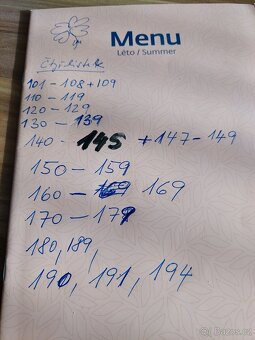 Menu
Léto / Summer
Čtyřlístek
101 - 108 + 109
110 - 119
120 - 129
130 - 139
140 - 145 + 147 - 149
150 - 159
160 - 169
170 - 179
180, 189,
190, 191, 194
Bazoš.cz